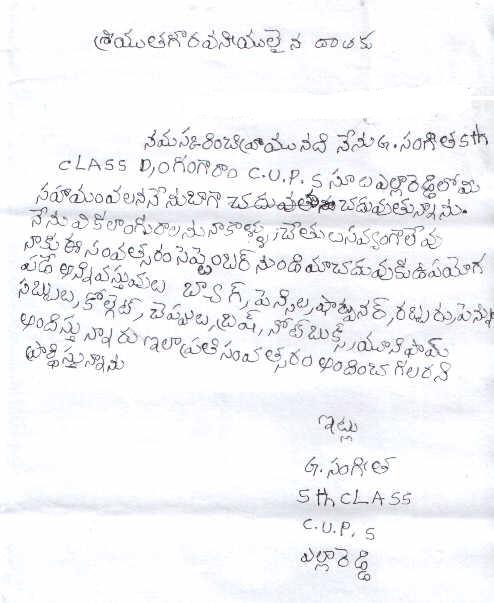 శ్రీయుతగౌరవనీయులైన దాతకు
నమస్కరించి వ్రాయునది నేను G. సంగీత 5th
CLASS D/O గంగారాం C.U.P.S స్కూల ఎల్లారెడ్డిలో మీ
సహాయంవలననేనుబాగా చదువుతూ చదువుతున్నాను.
నేను వికలాంగురాలను నాకాళ్ళు, చేతులసవ్యంగాలేవు
నాకు ఈ సంవత్సరం సెప్టెంబర్ నుండి మాచదువుకి ఉపయోగ
పడే అన్నివస్తువులు బ్యాగ్, పెన్సిల, షార్పునర్, రబ్బరు, పెన్ను
సబ్బుబ, కోల్గెట్, చెప్పుల, బ్రష్, నోట్ బుక్స్, యూనిఫామ్
అందిస్తున్నారు ఇలాప్రతిసంవత్సరం అందించగలరని
ప్రార్థిస్తున్నాను
ఇట్లు
G. సంగీత
5th CLASS
C.U.P. S
ఎల్లారెడ్డి